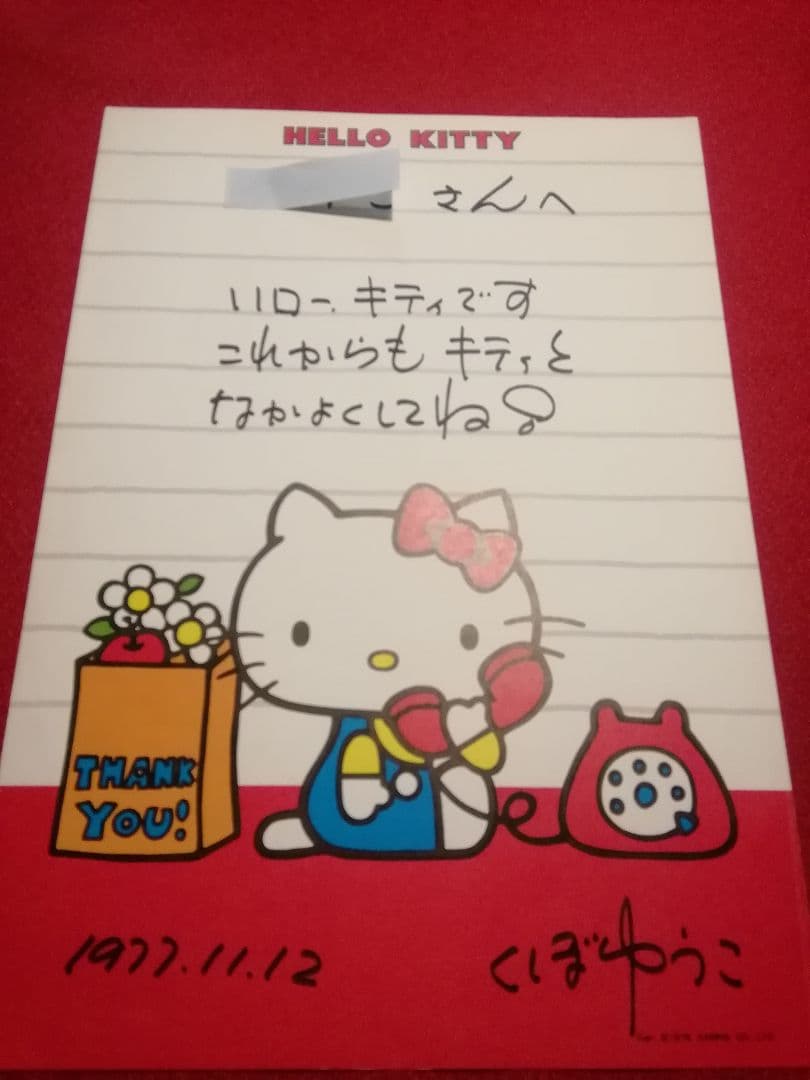 HELLO KITTY
さんへ
ハロー、キティです
これからも キティと
なかよくしてね
THANK
YOU!
1977.11.12
くぼゆうこ